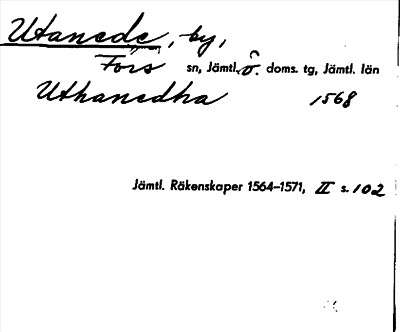 Utanede, by,
Fors sn, Jämtl. ö. doms. tg, Jämtl. län
Uthanedha 1568
Jämtl. Räkenskaper 1564–1571, II s. 102